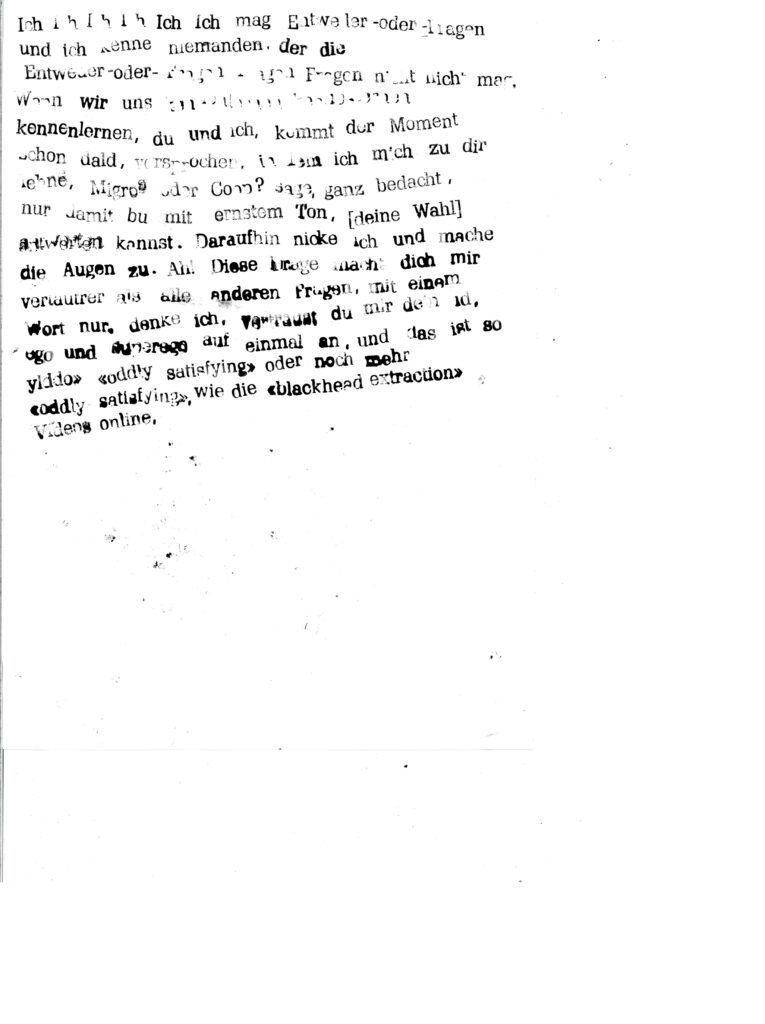 Ich ich Ich ich mag Entweder-oder-Fragen
und ich kenne niemanden. der die
Entweder-oder- Fragen Fragen nicht nicht mag.
Wenn wir uns
kennenlernen, du und ich, kommt der Moment
schon bald, versprochen, in dem ich mich zu dir
lehne, Migros oder Coop? sage, ganz bedacht,
nur damit bu mit ernstem Ton, [deine Wahl]
antworten kannst. Daraufhin nicke ich und mache
die Augen zu. Ah! Diese Frage macht dich mir
vertauter als alle anderen Fragen, mit einem
Wort nur, denke ich, vertraust du mir dein id,
ego und superego auf einmal an, und das ist so
yiddo» «oddly satisfying» oder noch mehr
«oddly satisfying», wie die «blackhead extraction»
Videos online.